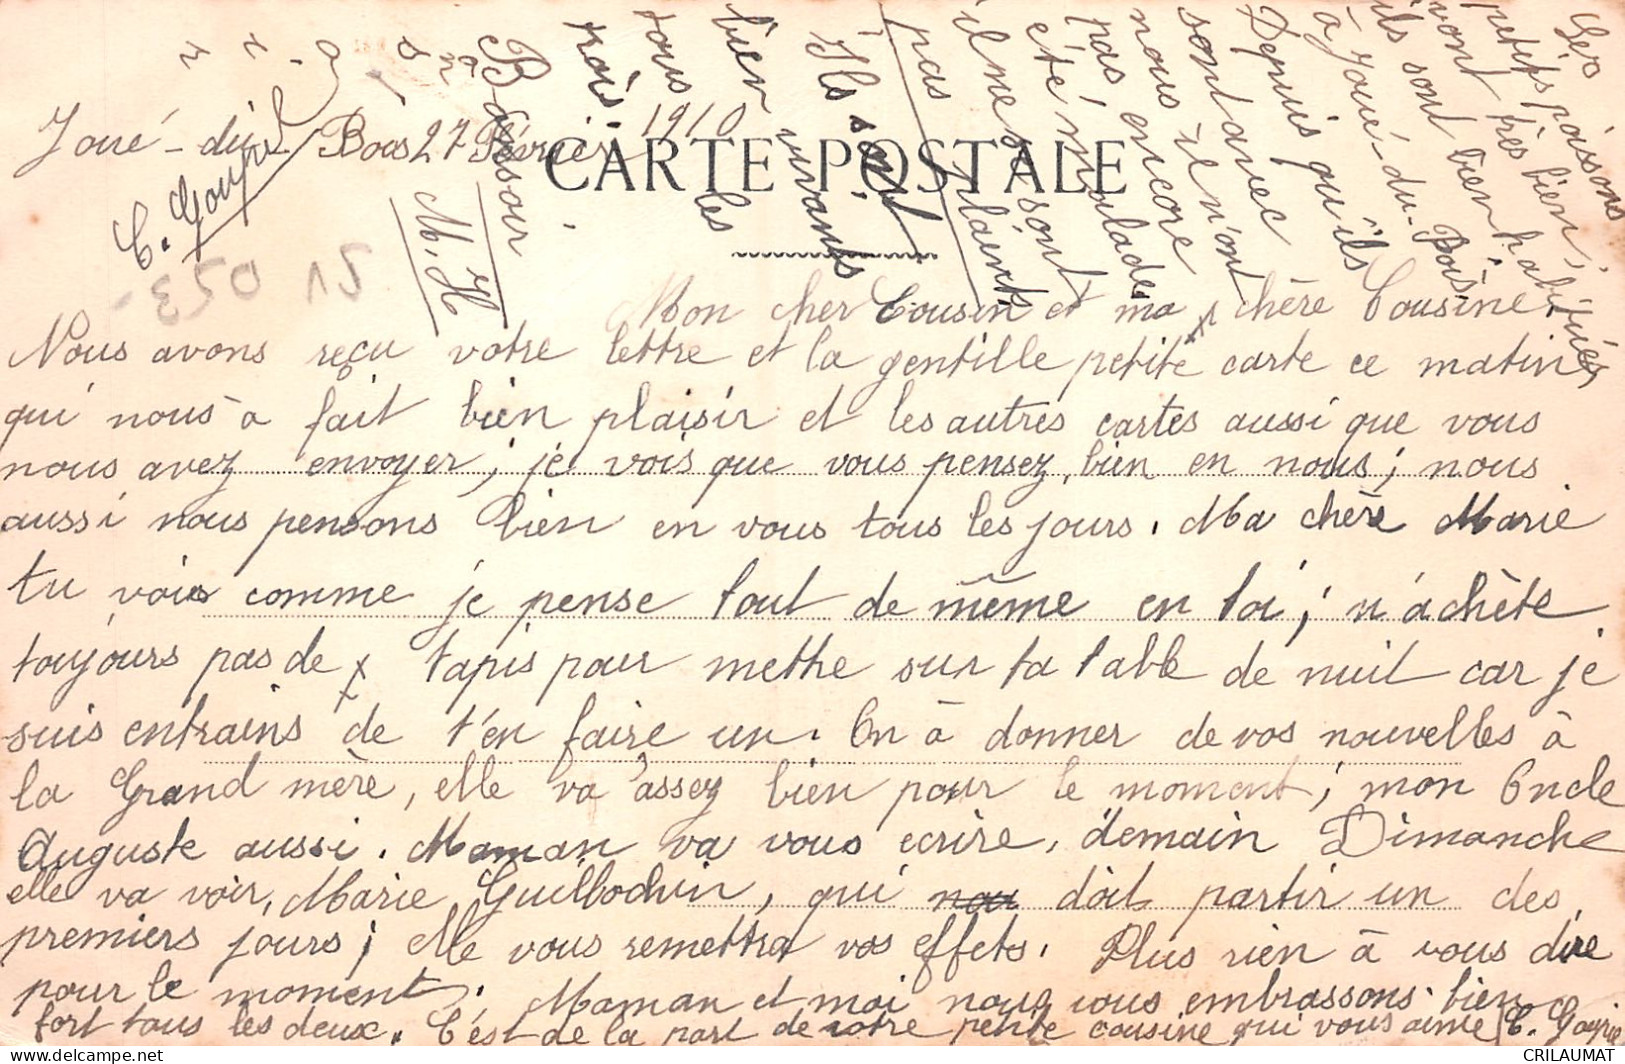 Joué-du-Bois 27 Février 1910
CARTE POSTALE
Mon cher Cousin et ma chère Cousine
Nous avons reçu votre lettre et la gentille petite carte ce matin
qui nous à fait bien plaisir et les autres cartes aussi que vous
nous avez envoyer; je vois que vous pensez bien en nous; nous
aussi nous pensons bien en vous tous les jours. Ma chère Marie
tu vois comme je pense tout de même en toi; n'achète
toujours pas de tapis pour mettre sur ta table de nuit car je
suis entrains de t'en faire un. On à donner de vos nouvelles à
la Grand mère, elle va assez bien pour le moment; mon Oncle
Auguste aussi. Maman va vous ecrire, demain Dimanche
elle va voir, Marie Guilbochin, qui doit partir un des
premiers jours; elle vous remettra vos effets. Plus rien à vous dire
pour le moment. Maman et moi nous vous embrassons bien
fort tous les deux. C'est de la part de votre petite cousine qui vous aime C. Goupil
Les
petits poissons
vont très bien;
ils sont bien habitués
à Joué-du-Bois
Depuis qu'ils
sont avec
nous il n'ont
pas encore
été malades
il me sont
pas plaints
Ils sont
bien vivants
tous les
trois.
Bonsoir
M. H
C. Goupil
350 15
CRILAUMAT